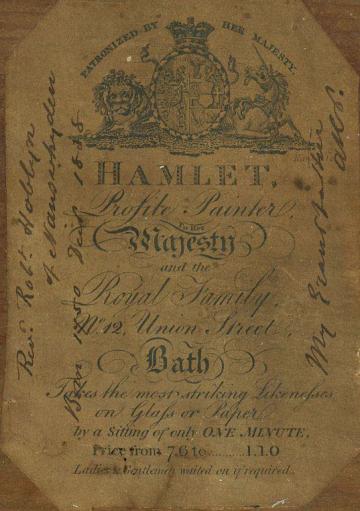 PATRONIZED BY HER MAJESTY.
HAMLET,
Profile Painter,
To Her
Majesty
and the
Royal Family,
Nº 12, Union Street,
Bath
Takes the most striking Likenesses
on Glass or Paper
by a Sitting of only ONE MINUTE,
Price from 7.6 to ......... 1.1.0
Ladies & Gentlemen waited on if required.
Revd. Robt. Hoblyn
of Nanswhyden
Born Died
My